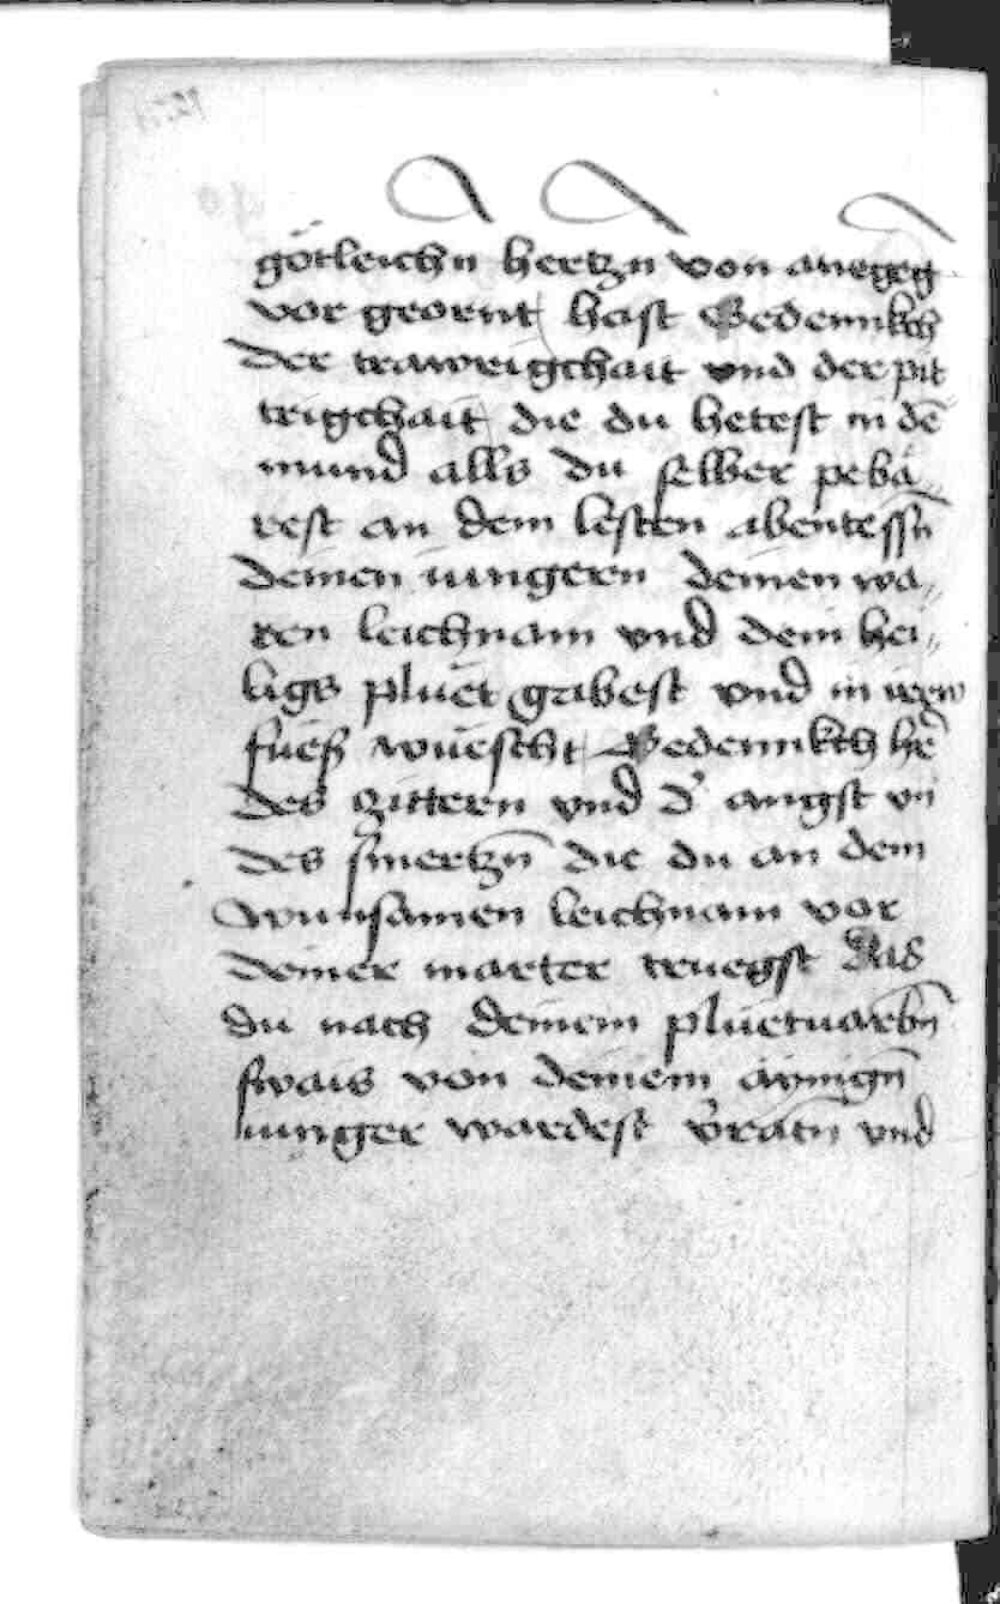 götleichn hertzn von anegeg
vor geornt hast Gedennkch
der trawrigchait vnd der pit
trigchait die du hetest in dē
mund alls du selber pebä„
rest an dem lesten abentessn̄
deinen iungern deinen wa„
ren leichnam vnd dein hei„
ligs plüet gabest vnd in iren
füeß wüescht Gedennkch he᷑
des zittern vnd d᷑ angst vn̄
des smertzn̄ die du an dem
wunsamen leichnam vor
deiner marter truegst Das
du nach deinem plüetuarbn̄
swais von deinem aynign̄
iunger wardest v᷑ratn̄ vnd